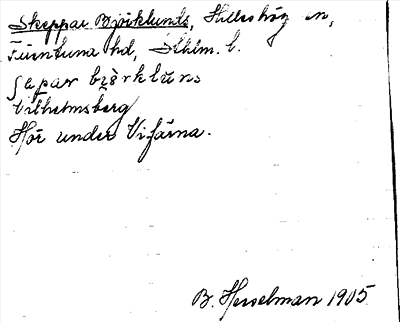 Skeppar Björklunds, Hilleshög sn,
Färentuna hd, Sthlm. l.
ʃäpar biörkluns
Vilhelmsberg
Hör under Vifärna.
B. Hesselman 1905